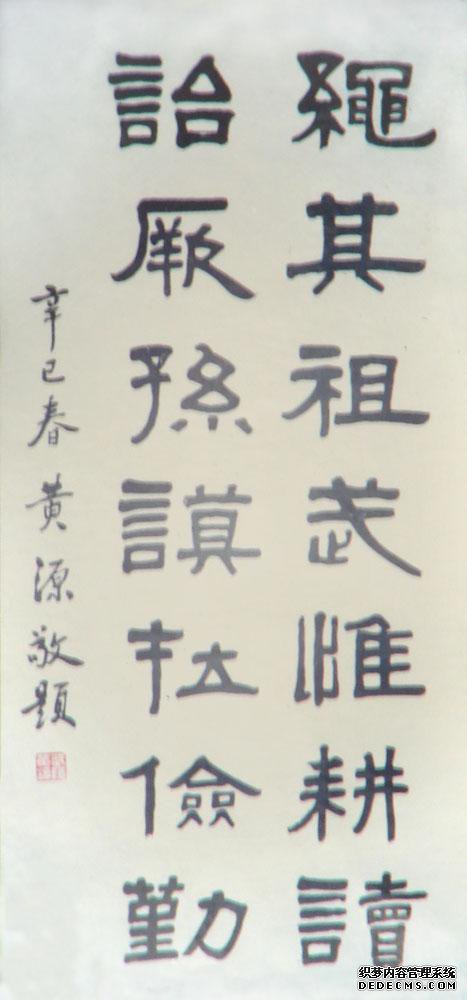 繩其祖武惟耕讀
詒厥孫謨在儉勤
辛巳春黄源敬題
织梦内容管理系统
DEDECMS.COM